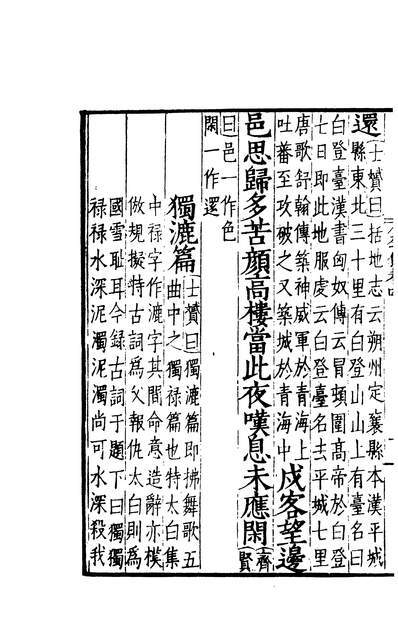 還
士贇曰括地志云朔州定襄縣本漢平城
縣東北三十里有白登山山上有臺名曰
白登臺漢書匈奴傳云冒頓圍高帝於白登
七日即此地服虔云白登臺名去平城七里
唐歌舒翰傳築神威軍於青海上
吐蕃至攻破之又築城於青海中
戍客望邊
邑思歸多苦顔高樓當此夜嘆息未應閑
齊賢
曰邑一作色
閑一作還
獨漉篇
士贇曰獨漉篇即拂舞歌五
曲中之獨祿篇也特太白集
中祿字作漉字其間命意造辭亦模
倣規擬特古詞為父報仇太白則為
國雪耻耳今録古詞于題下曰獨獨
祿祿水深泥濁泥濁尚可水深殺我